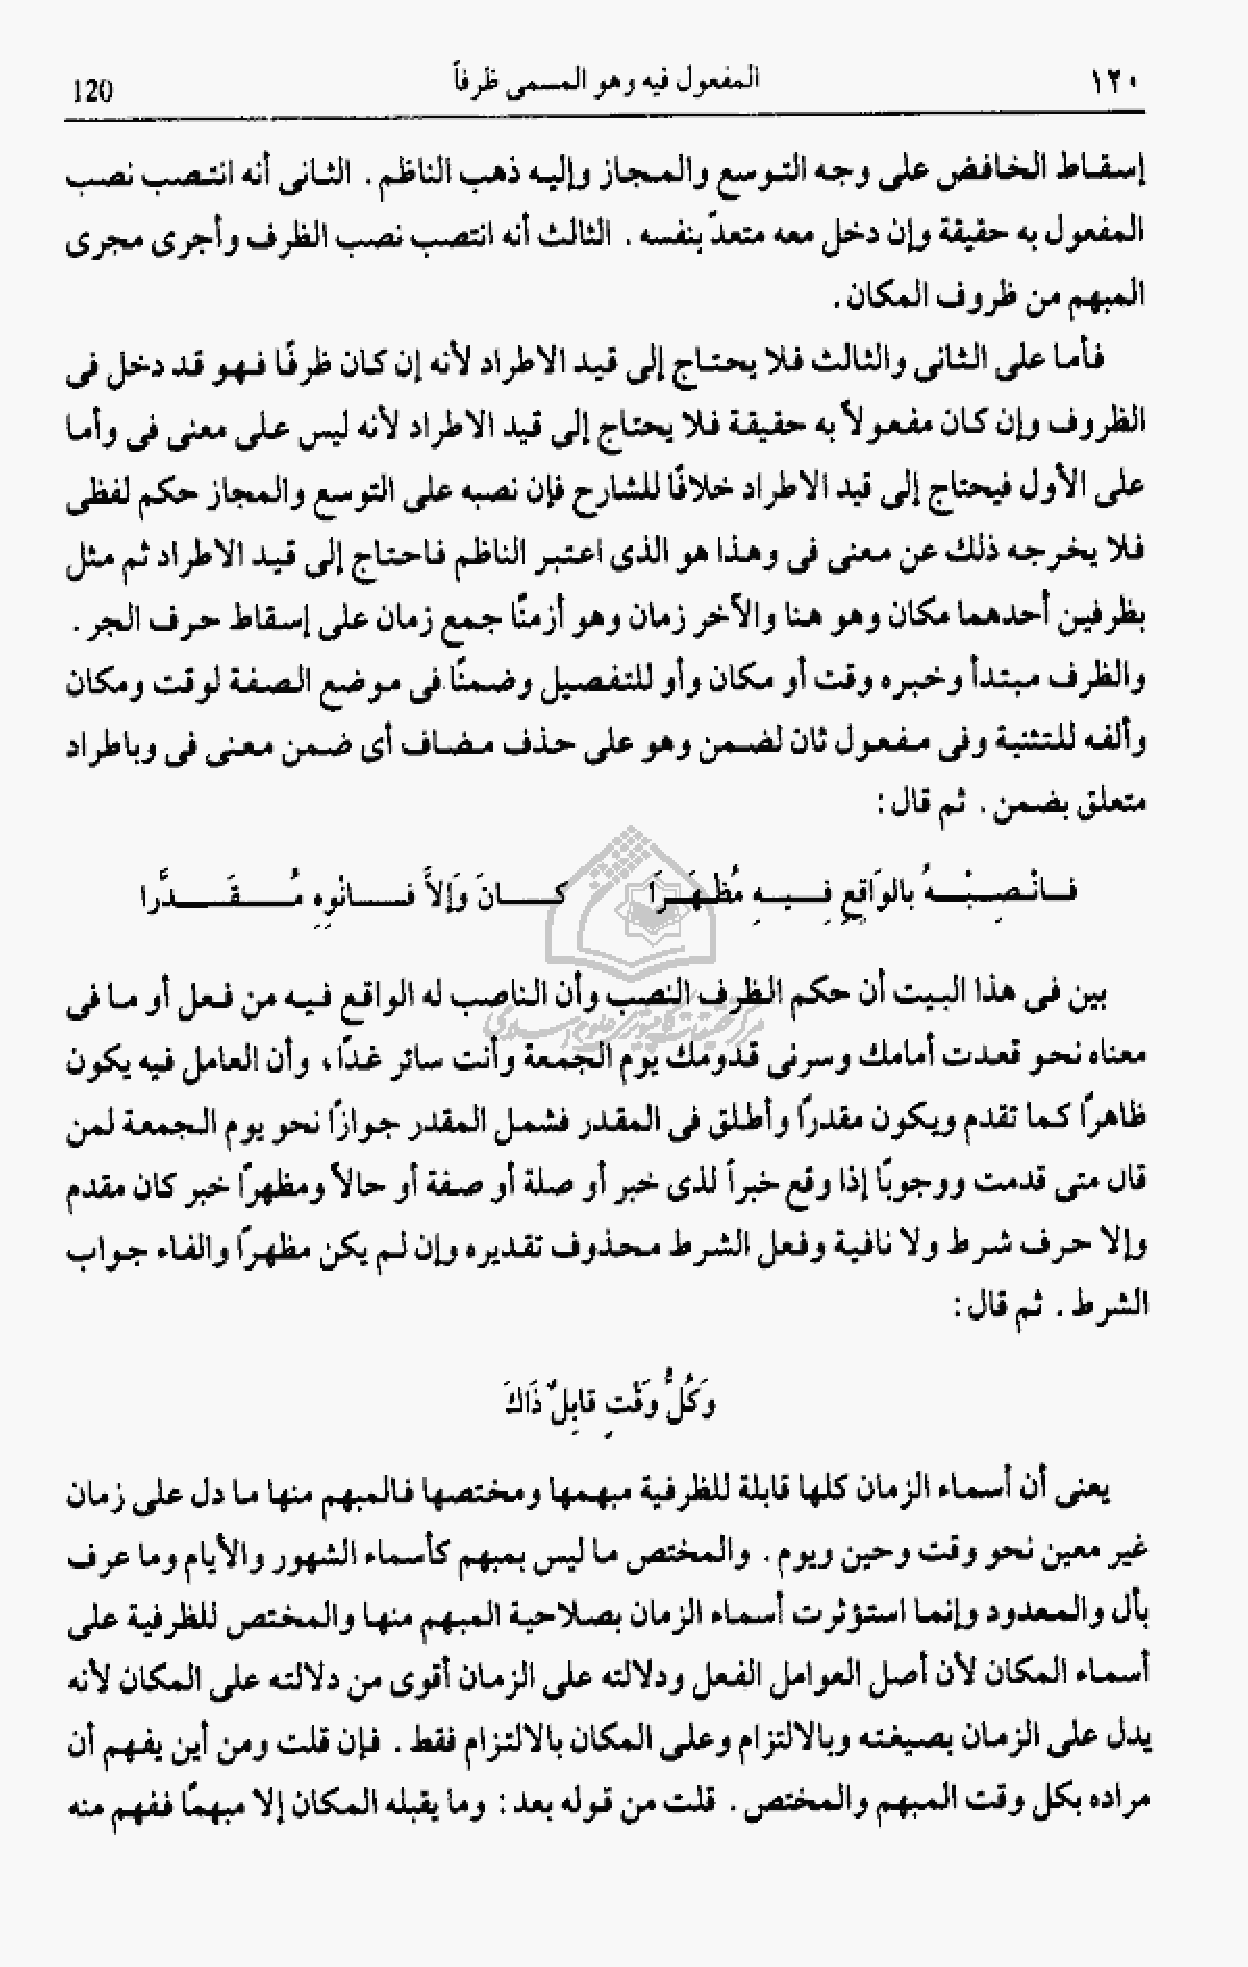 ١٢٠ المفعول فيه وهو المسمى ظرفاً 120
إسقاط الخافض على وجه التوسع والمجاز وإليه ذهب الناظم . الثانى أنه انتصب نصب
المفعول به حقيقة وإن دخل معه متعدّ بنفسه . الثالث أنه انتصب نصب الظرف وأجرى مجرى
المبهم من ظروف المكان .
فأما على الثانى والثالث فلا يحتاج إلى قيد الاطراد لأنه إن كان ظرفًا فهو قد دخل فى
الظروف وإن كان مفعولاً به حقيقة فلا يحتاج إلى قيد الاطراد لأنه ليس على معنى فى وأما
على الأول فيحتاج إلى قيد الاطراد خلافًا للشارح فإن نصبه على التوسع والمجاز حكم لفظى
فلا يخرجه ذلك عن معنى فى وهذا هو الذى اعتبر الناظم فاحتاج إلى قيد الاطراد ثم مثل
بظرفين أحدهما مكان وهو هنا والآخر زمان وهو أزمنًا جمع زمان على إسقاط حرف الجر .
والظرف مبتدأ وخبره وقت أو مكان وأو للتفصيل وضمنًا فى موضع الصفة لوقت ومكان
وألفه للتثنية وفى مفعول ثان لضمن وهو على حذف مضاف أى ضمن معنى فى وباطراد
متعلق بضمن . ثم قال :
فَانْصِبْهُ بِالوَاقِعِ فِيهِ مُظْهَرَا كَانَ وَإِلاَّ فَانْوِهِ مُقَدَّرا
بين فى هذا البيت أن حكم الظرف النصب وأن الناصب له الواقع فيه من فعل أو ما فى
معناه نحو قعدت أمامك وسرنى قدومك يوم الجمعة وأنت سائر غدًا ، وأن العامل فيه يكون
ظاهرًا كما تقدم ويكون مقدرًا وأطلق فى المقدر فشمل المقدر جوازًا نحو يوم الجمعة لمن
قال متى قدمت ووجوبًا إذا وقع خبرأ لذى خبر أو صلة أو صفة أو حالاً ومظهرًا خبر كان مقدم
وإلا حرف شرط ولا نافية وفعل الشرط محذوف تقديره وإن لم يكن مظهرًا والفاء جواب
الشرط . ثم قال :
وَكُلُّ وَقْتٍ قَابِلٌ ذَاكَ
يعنى أن أسماء الزمان كلها قابلة للظرفية مبهمها ومختصها فالمبهم منها ما دل على زمان
غير معين نحو وقت وحين ويوم . والمختص ما ليس بمبهم كأسماء الشهور والأيام وما عرف
بأل والمعدود وإنما استؤثرت أسماء الزمان بصلاحية المبهم منها والمختص للظرفية على
أسماء المكان لأن أصل العوامل الفعل ودلالته على الزمان أقوى من دلالته على المكان لأنه
يدل على الزمان بصيغته وبالالتزام وعلى المكان بالالتزام فقط . فإن قلت ومن أين يفهم أن
مراده بكل وقت المبهم والمختص . قلت من قوله بعد : وما يقبله المكان إلا مبهمًا ففهم منه